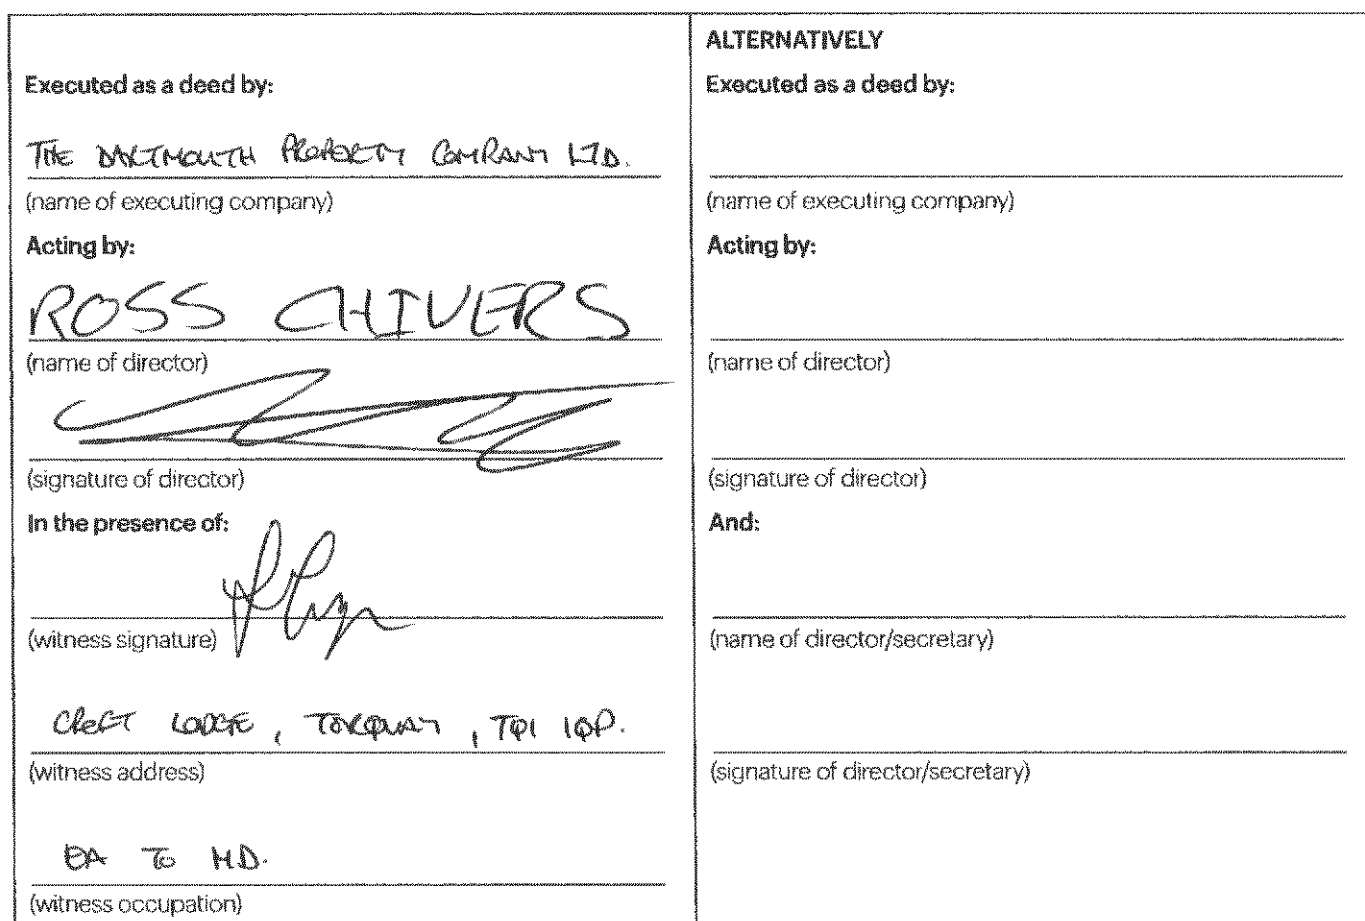 Executed as a deed by:
THE DARTMOUTH PROPERTY COMPANY LTD.
(name of executing company)
Acting by:
ROSS CHIVERS
(name of director)
(signature of director)
In the presence of:
(witness signature)
CROFT LODGE, TORQUAY, TQ1 1QP.
(witness address)
EA TO M.D.
(witness occupation)
ALTERNATIVELY
Executed as a deed by:
(name of executing company)
Acting by:
(name of director)
(signature of director)
And:
(name of director/secretary)
(signature of director/secretary)